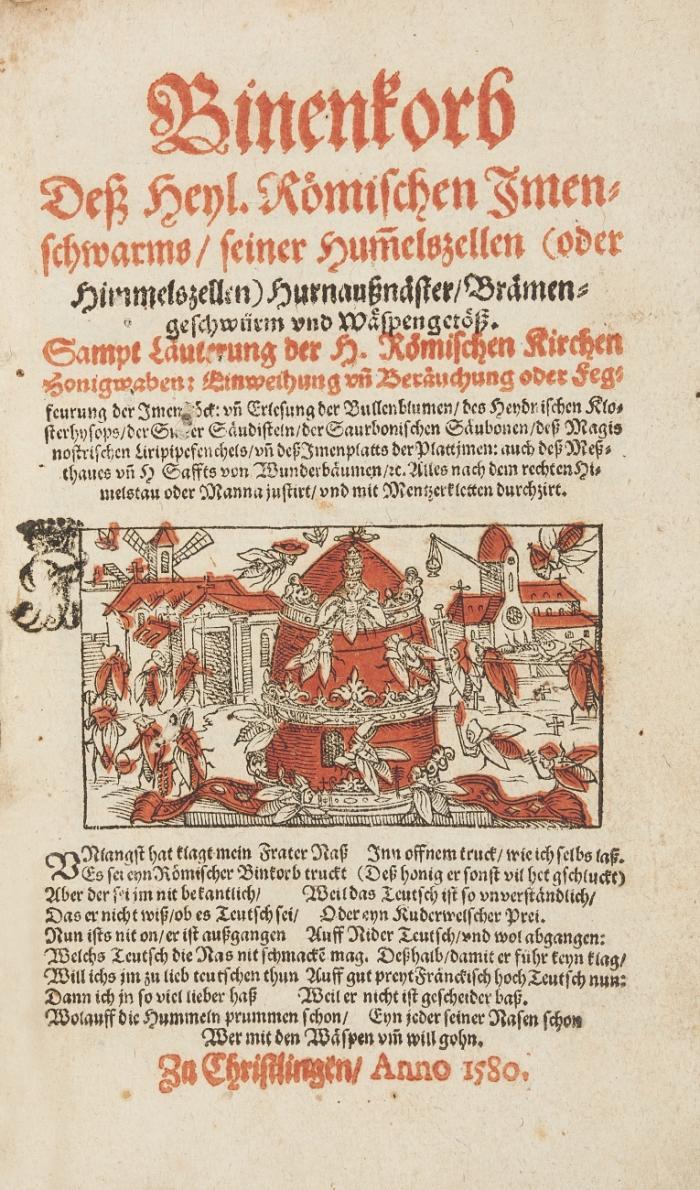 Binenkorb
Deß Heyl. Römischen Jmen⸗
schwarms/ seiner Hum̃elszellen (oder
Himmelszellen) Hurnaußnäster/ Brämen⸗
geschwürm vnd Wäspengetöß.
Sampt Läuterung der H. Römischen Kirchen
Honigwaben: Einweihung vñ Beräuchung oder Feg⸗
feurung der Jmenstöck: vñ Erlesung der Bullenblumen/ des Heydnischen Klo⸗
sterhysops/ der Säudisteln/ der Saurbonischen Säubonen/ deß Magis
nostrischen Liripipefenchels/ vñ deß Jmenplatts der Plattjmen: auch deß Meß⸗
thaues vñ H Saffts von Wunderbäumen/ ꝛc. Alles nach dem rechten Hi⸗
melstau oder Manna justirt/ vnd mit Mentzerkletten durchzirt.
VNlangst hat klagt mein Frater Naß Jnn offnem truck/ wie ich selbs laß.
Es sei eyn Römischer Binkorb truckt (Deß honig er sonst vil het gschluckt)
Aber der sei im nit bekantlich/ Weil das Teutsch ist so vnverständlich/
Das er nicht wiß/ ob es Teutsch sei/ Oder eyn Kuderwelscher Prei.
Nun ists nit on/ er ist außgangen Auff Nider Teutsch/ vnd wol abgangen:
Welchs Teutsch die Nas nit schmackẽ mag. Deßhalb/ damit er führ keyn klag/
Will ichs jm zu lieb teutschen thun Auff gut preyt Fränckisch hoch Teutsch nun:
Dann ich jn so viel lieber haß Weil er nicht ist gescheider baß.
Wolauff die Hummeln prummen schon/ Eyn jeder seiner Nasen schon
Wer mit den Wäspen vm̃ will gohn.
Zu Christlingen/ Anno 1580.